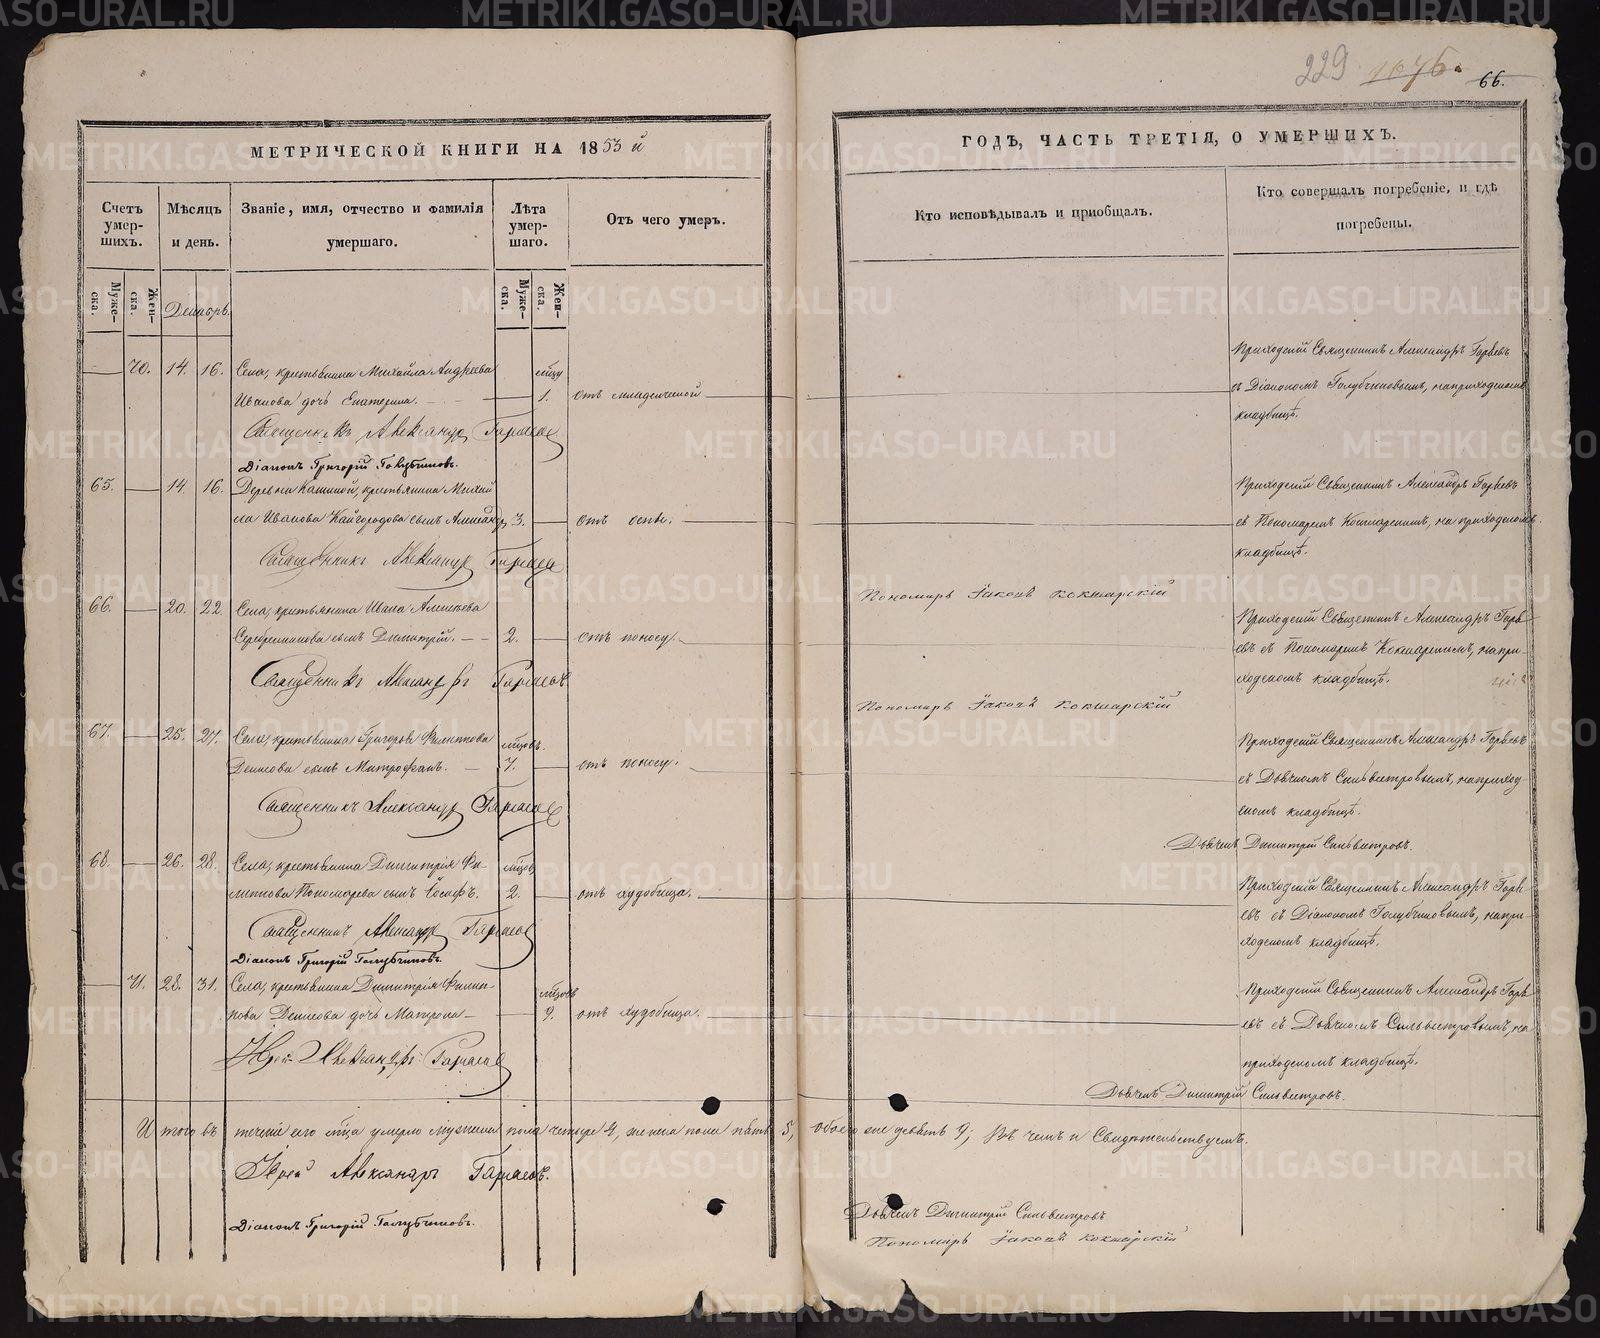 229 1676. 66.
МЕТРИЧЕСКОЙ КНИГИ НА 1853 й
ГОДЪ, ЧАСТЬ ТРЕТІЯ, О УМЕРШИХЪ.
Счетъ умер-
шихъ.
Мѣсяцъ
и день.
Званіе, имя, отчество и фамилія
умершаго.
Лѣта
умер-
шаго.
Отъ чего умеръ.
Кто исповѣдывалъ и пріобщалъ.
Кто совершалъ погребеніе, и гдѣ
погребены.
Муже-
ска.
Жен-
ска.
Декабрь.
Муже-
ска.
Жен-
ска.
70. 14. 16. Села, крестьянина Михайла Андреева
Иванова дочь Екатерина. 1. отъ младенческой
Приходскій Священникъ Александръ
съ Діакономъ Голубчиковымъ, на приходскомъ
кладбищѣ.
Священникъ Александръ
Діаконъ Григорій Голубчиковъ.
65. 14. 16. Деревни крестьянина Михай
ла Иванова Кайгородова сынъ Александръ 3. отъ оспы.
Приходскій Священникъ Александръ
съ Пономаремъ Кокшарскимъ, на приходскомъ
кладбищѣ.
Священникъ Александръ
Пономарь Іаковъ Кокшарскій
66. 20. 22. Села, крестьянина Ивана Алексѣева
Серебренникова сынъ Димитрій. 2. отъ поносу.
Приходскій Священникъ Александръ
съ Пономаремъ Кокшарскимъ, на при-
ходскомъ кладбищѣ.
Священникъ Александръ
Пономарь Іаковъ Кокшарскій
67. 25. 27. Села, крестьянина Григорья Филиппова
Денисова сынъ Митрофанъ. 7. отъ поносу.
Приходскій Священникъ Александръ
съ Дьячкомъ Сильвестровымъ, на приход
скомъ кладбищѣ.
Священникъ Александръ
Дьячекъ Димитрій Сильвестровъ.
68. 26. 28. Села, крестьянина Димитрія Фи-
липпова Пономарева сынъ Іосифъ. 2. отъ худобища.
Приходскій Священникъ Александръ
съ Діакономъ Голубчиковымъ, на при-
ходскомъ кладбищѣ.
Священникъ Александръ
Діаконъ Григорій Голубчиковъ.
71. 28. 31. Села, крестьянина Димитрія Филип-
пова Денисова дочь Матрона 9. отъ худобища.
Приходскій Священникъ Александръ
съ Дьячкомъ Сильвестровымъ, на
приходскомъ кладбищѣ.
Іерей Александръ
Дьячекъ Димитрій Сильвестровъ.
Итого въ теченіе сего мца умерло мужеска пола четыре 4, женска пола пять 5, обоего девять 9; въ чемъ и Свидѣтельствуемъ.
Іерей Александръ
Діаконъ Григорій Голубчиковъ.
Дьячекъ Димитрій Сильвестровъ
Пономарь Іаковъ Кокшарскій
METRIKI.GASO-URAL.RU